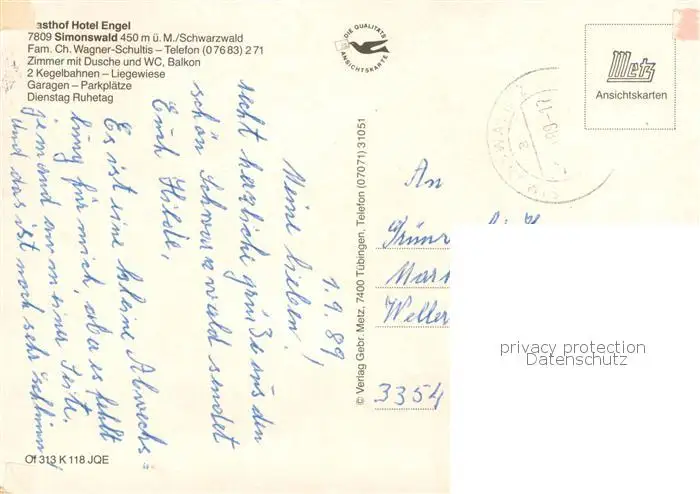 asthof Hotel Engel
7809 Simonswald 450 m ü. M./Schwarzwald
Fam. Ch. Wagner-Schultis – Telefon (07683) 271
Zimmer mit Dusche und WC, Balkon
2 Kegelbahnen – Liegewiese
Garagen – Parkplätze
Dienstag Ruhetag
1.9.89
Meine Lieben!
recht herzliche Grüße aus den
schön Schwarzwald sendet
Euch Hilde,
Es ist eine kleine Abwechs-
lung für mich, aber es fehlt
jemand an meiner Seite.
und das ist noch sehr schlimm
Of 313 K 118 JQE
DIE QUALITÄTS
ANSICHTSKARTE
© Verlag Gebr. Metz, 7400 Tübingen, Telefon (07071) 31051
Metz
Ansichtskarten
An
3354
privacy protection
Datenschutz